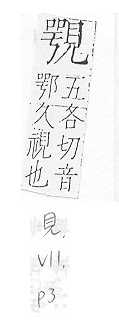 五各切音
鄂久視也
見.
VII.
p3